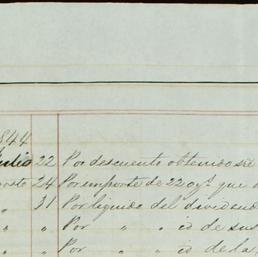 1844
Julio 22 Por descuento obtenido s
Agosto 24 Por importe de 22 que
" 31 Por liquido del dividendo
" " Por " " id de sus
" " Por " " id de la